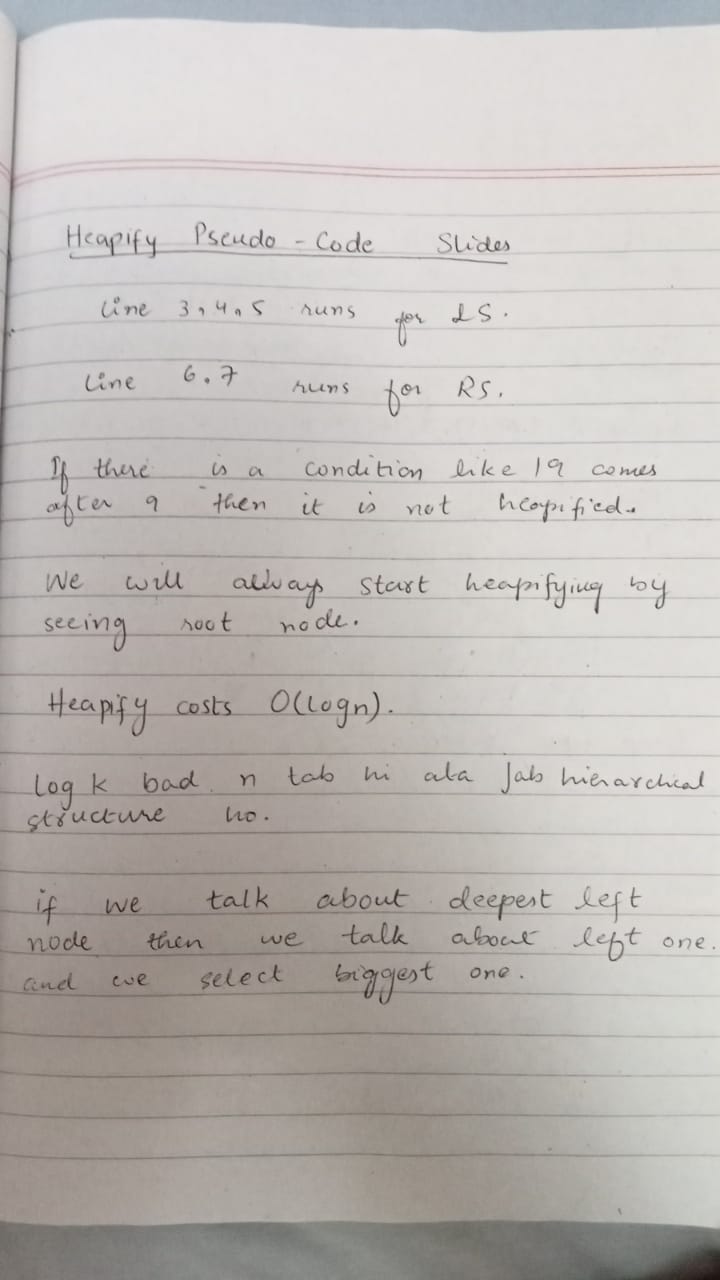 Heapify Pseudo-Code Slides
Line 3,4,5 runs for LS.
Line 6,7 runs for RS.
If there is a condition like 19 comes
after 9 then it is not heapified.
We will always start heapifying by
seeing root node.
Heapify costs O(logn).
log k bad n tab hi ata Jab hierarchical
structure ho.
if we talk about deepest left
node then we talk about left one.
and we select biggest one.